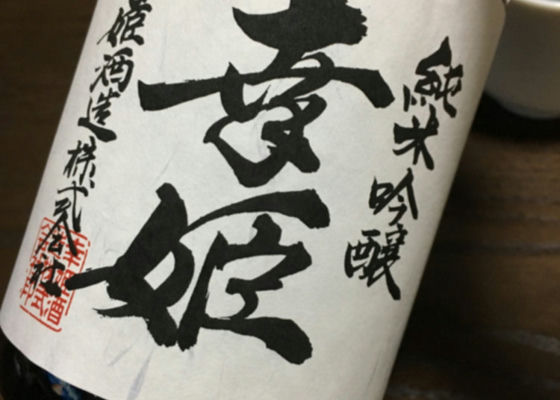 純米吟醸
幸姫
姫酒造株式会社